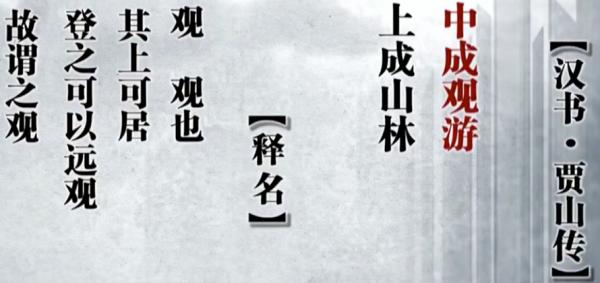 【汉书·贾山传】
中成观游
上成山林
【释名】
观 观也
其上可居
登之可以远观
故谓之观